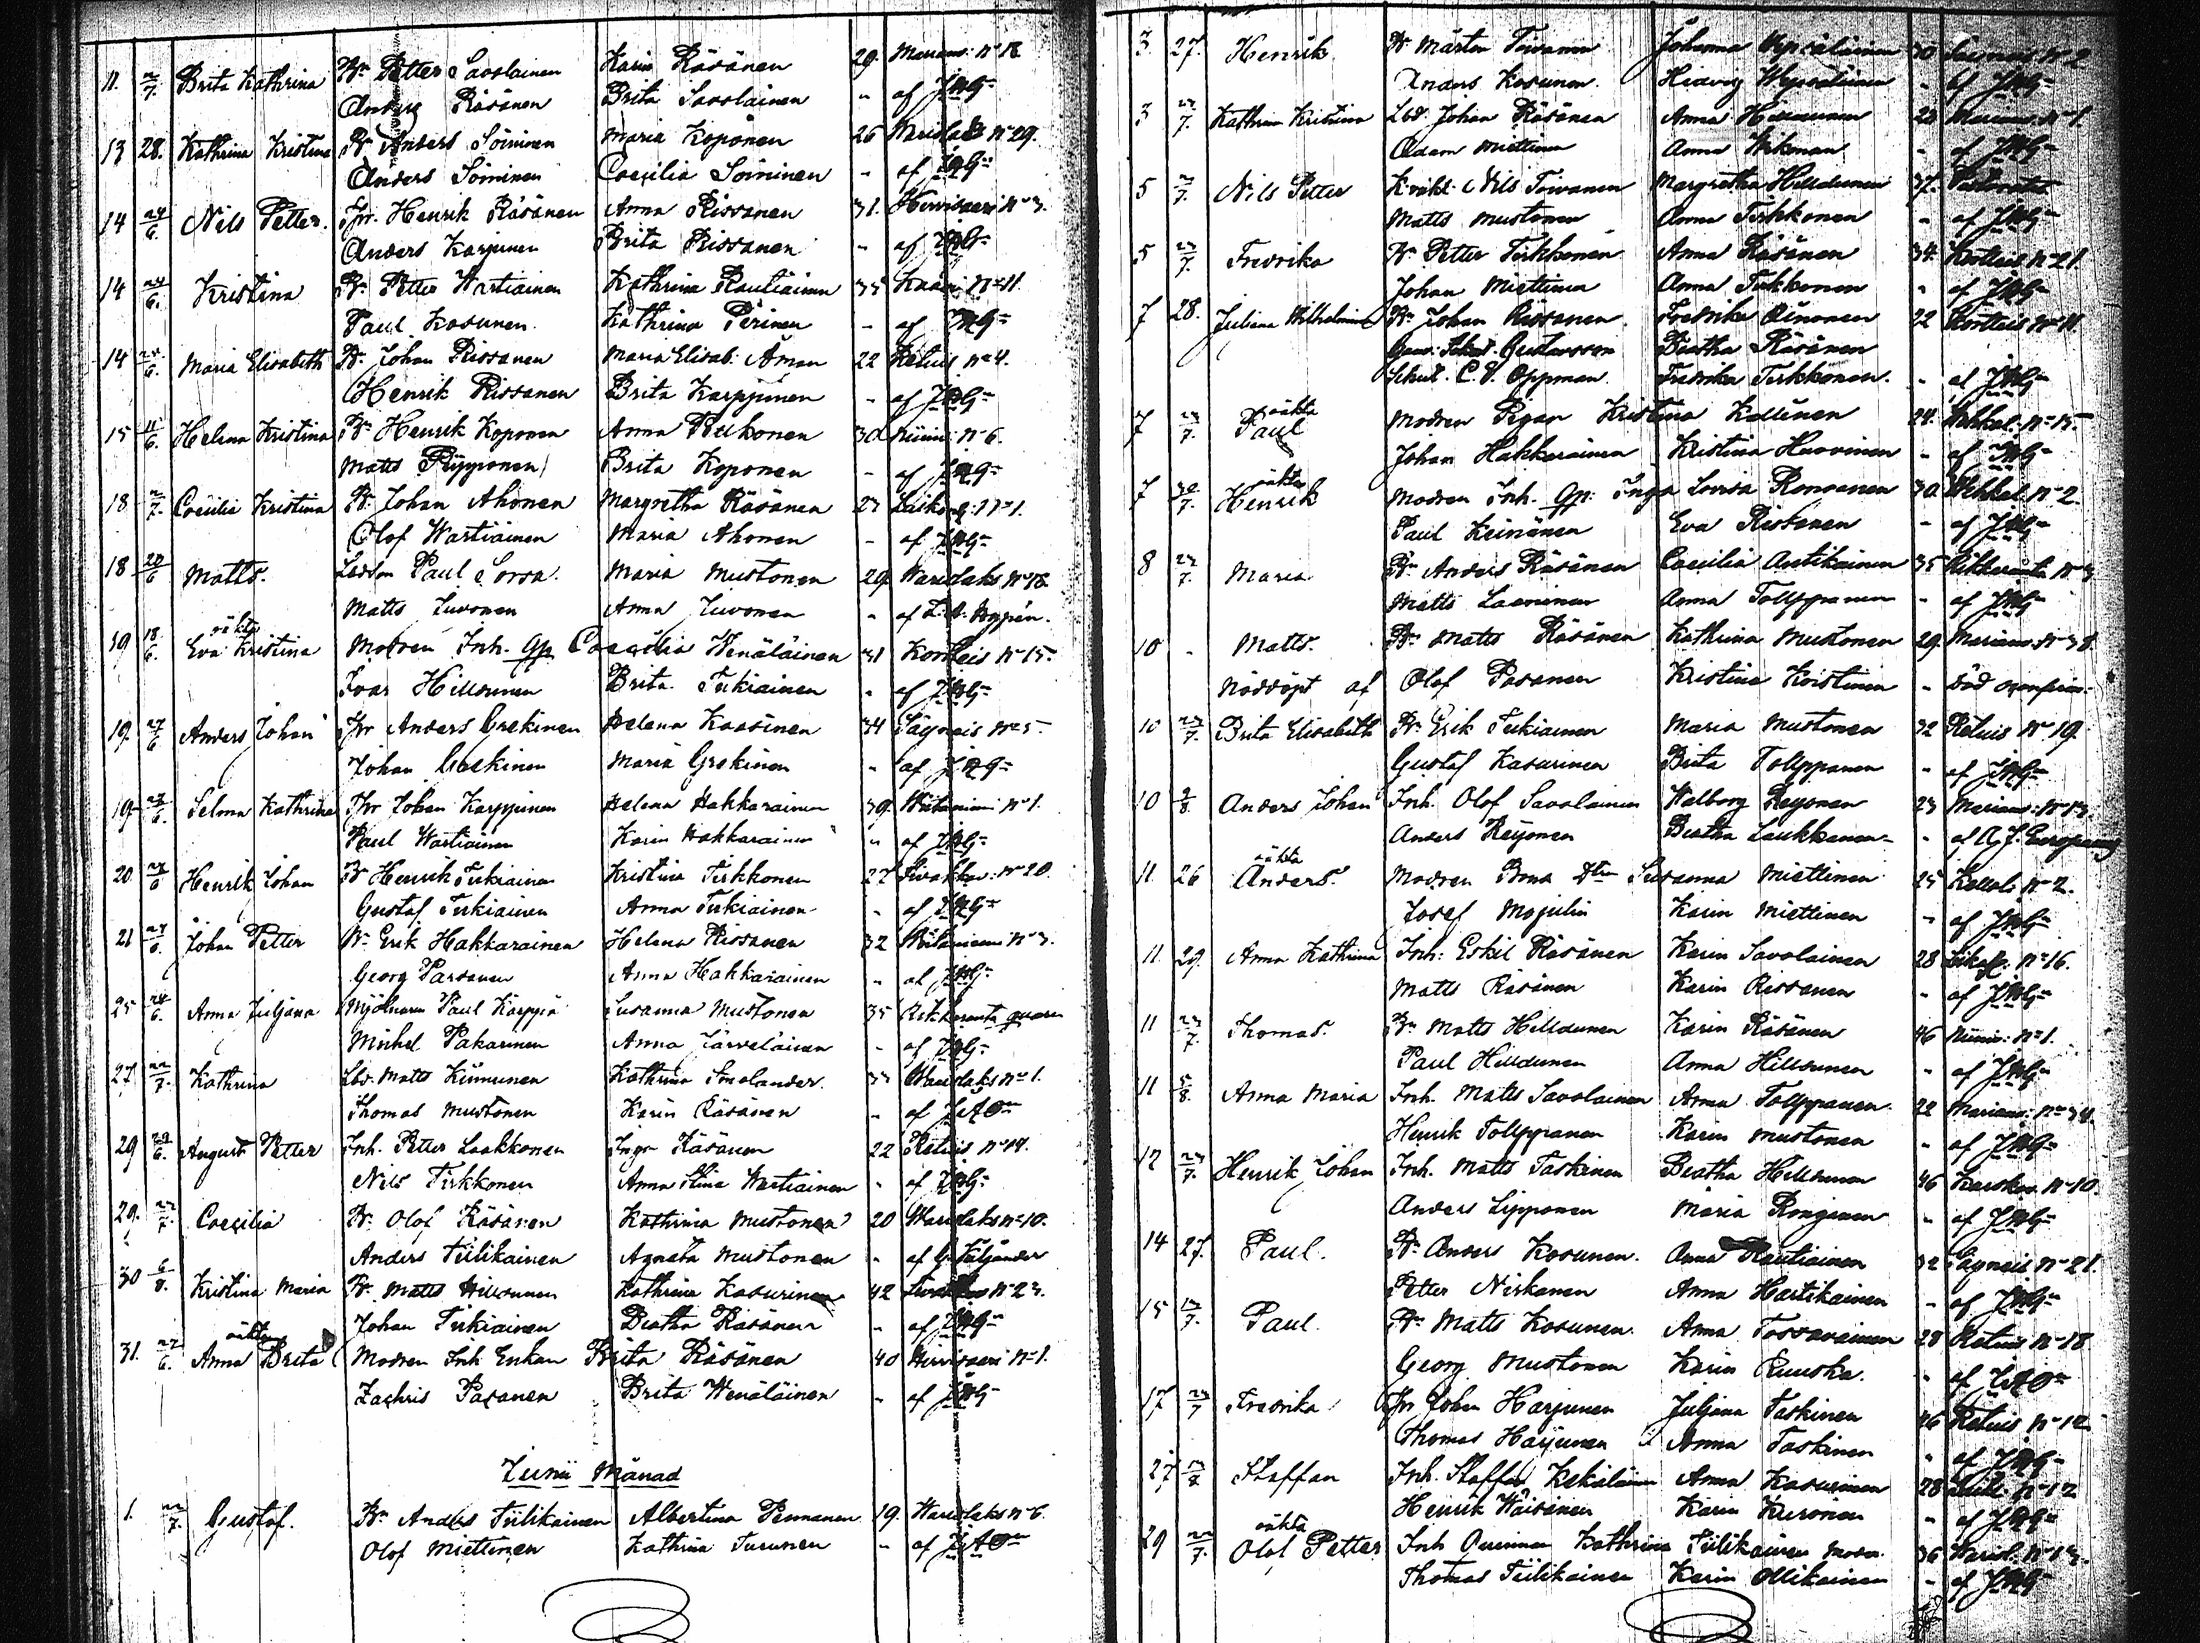 11. 2/7. Brita Kathrina Bn Petter Savolainen Karin Räsänen 29. Marians: No 18
Anders Räsänen Brita Savolainen " af JMG
13 28. Kathrina Kristina Bn Anders Soininen Maria Koponen 26 Varislaks No 29.
Anders Soininen Caecilia Soininen " af JMG
14 24/6. Nils Petter. Thr. Henrik Räsänen Anna Rissanen 31. Hirvisaari No 3.
Anders Karjunen Brita Rissanen " af JMG
14 24/6. Kristina Bn Petter Wartiainen Kathrina Rautiainen 35 No 11.
Paul Kosunen. Kathrina Pirinen " af JMG
14 24/6. Maria Elisabeth Bn Johan Rissanen Maria Elisab: Åman 22 Retuis No 4.
Henrik Rissanen Brita Karppinen " af JMG
15 11/6. Helena Kristina Bn Henrik Koponen Anna Pulkonen 30 Niini: No 6.
Matts Ryyponen Brita Koponen " af JMG
18 2/7. Caecilia Kristina Bn Johan Ahonen Margretha Räsänen 27 No 1.
Olof Wartiainen Maria Ahonen " af JMG
18 20/6 Matts. Paul Sorsa. Maria Mustonen 29. Varislaks No 18.
Matts Juvonen Anna Juvonen "
oäkta
19 18/6. Eva Kristina Modren Inh. Gp. Caecilia Wenäläinen 31 Kortteis No 15.
Ivar Hilldunen Brita Tukiainen " af JMG
19. 27/6 Anders Johan Thr Anders Grekinen Helena Kaasinen 34 Sägneis No 5
Johan Grekinen Maria Grekinen " af JMG
19 27/6. Selma Kathrina Thr Johan Karppinen Helena Hakkarainen 39. No 1.
Paul Wartiainen Karin Hakkarainen " af JMG
20 27/6 Henrik Johan Bn Henrik Tukiainen Kristina Tirkkonen 27 No 20.
Gustaf Tukiainen Anna Tukiainen " af JMG
21 27/6. Johan Petter Bn Erik Hakkarainen Helena Rissanen 32 No 3.
Georg Parsanen Anna Hakkarainen " af JMG
25 24/6. Anna Juljana Mjölnaren Paul Karppi Susanna Mustonen 35
Michel Pakarinen Anna Järveläinen " af JMG
27. 22/7. Kathrina Matts Kinnunen Kathrina Smolander. Varislaks No 1.
Thomas Mustonen Karin Räsänen " af
29 29/6. August Petter Inh. Petter Laakkonen Inga Räsänen 22 Retuis No 14.
Nils Tirkkonen Anna Stina Wartiainen " af JMG
29. 22/7. Caecilia Bn Olof Räsänen Kathrina Mustonen 20 Varislaks No 10.
Anders Tiilikainen Agneta Mustonen " af
30 6/8. Kristina Maria Bn Matts Hilldunen Kathrina Kasurinen 42 No 23.
Johan Tukiainen Beatha Räsänen " af JMG
oäkta
31. 27/6. Anna Brita Modren Inh Enkan Brita Räsänen 40 Hirvisaari No 1.
Zachris Pasanen Brita Wenäläinen " af JMG
Junii Månad
1. 22/7. Gustaf. Bn Anders Tiilikainen Albertina Pennanen 19. Varislaks No 6.
Olof Miettinen Kathrina Turunen " af
3. 27. Henrik Bn Mårten Toivanen Johanna 30 No 2
Anders Kosunen. Hedvig " af JMG
3 27/7. Kathrina Kristina Johan Räsänen Anna 23 Marians: No 1
Adam Miettinen Anna Wikman " af JMG
5 2/7. Nils Petter Nils Toivanen Margretha Hilldunen 37.
Matts Mustonen Anna Tirkkonen " af JMG
5 27/7. Fredrika Bn Petter Tirkkonen Anna Räsänen 34. Kortteis No 21.
Johan Miettinen Anna Tirkkonen " af JMG
7 28. Juliana Wilhelmina Bn Johan Rissanen. Fredrika Ainonen 22 Kortteis No 11.
Gustavsson Beatha Räsänen
C. V. Oppman. Fredrika Tirkkonen. " af JMG
oäkta
7 27/7. Paul Modren Pigan Kristina Kellinen 24. Wehkal: No 15.
Johan Hakkarainen Kristina Harvinen " af JMG
oäkta
7 30/7. Henrik Modren Inh. Gp: Inga Lovisa Ronganen 30 Wehkal. No 2.
Paul Keinänen Eva Rissanen " af JMG
8 27/7. Maria Bn Anders Räsänen Caecilia Antikainen 35 No 3
Matts Laaninen Anna Tolppanen " af JMG
10 " Matts. Bn Matts Räsänen Kathrina Mustonen 29. Marians: No 38.
Nöddöpt af Olof Pasanen Kristina Koistinen " Död
10 27/7. Brita Elisabeth Bn Erik Tukiainen Maria Mustonen 32 Retuis No 19.
Gustaf Kasurinen Brita Tolppanen " af JMG
10 2/8. Anders Johan Inh. Olof Savolainen Walborg Reijonen 23 Marians: No 13.
Anders Reijonen Beatha Laukkanen " af A. J. Europaeus
oäkta
11. 26 Anders. Modren Susanna Miettinen 25 No 2.
Josef Mojulin Karin Miettinen " af JMG
11. 29. Anna Kathrina Inh: Eskil Räsänen Karin Savolainen 28 No 16.
Matts Räsänen Karin Rissanen " af JMG
11 27/7 Thomas. Bn Matts Hilldunen Karin Räsänen 46 Niini: No 1.
Paul Hilldunen Anna Hilldunen " af JMG
11 5/8. Anna Maria Inh. Matts Savolainen Anna Tolppanen 22 Marians: No 34.
Henrik Tolppanen Karin Mustonen " af JMG
12 27/7. Henrik Johan Inh. Matts Taskinen Beatha Hilldunen 46 No 10.
Anders Lipponen Maria Ronganen " af JMG
14 27. Paul. Bn Anders Kosunen. Anna Rautiainen 32 Sägneis No 21.
Petter Niskanen Anna Hartikainen " af JMG
15 12/7. Paul. Bn Matts Kosunen. Anna Tossavainen 28 Retuis No 18
Georg Mustonen Karin Ruuska. " af
17 27/7 Fredrika Thr Johan Harjunen Juljana Taskinen 46 Retuis No 12
Thomas Harjunen Anna Taskinen " af JMG
27 Staffan Inh. Staffan Kekäläinen Anna Kasurinen 28 No 12
Henrik Wäisänen Karin Kuronen " af JMG
oäkta
29 22/7. Olof Petter Inh Qvinnan Kathrina Tiilikainen Moder. 36 Varisl. No 13.
Thomas Tiilikainen Karin Ollikainen " af JMG